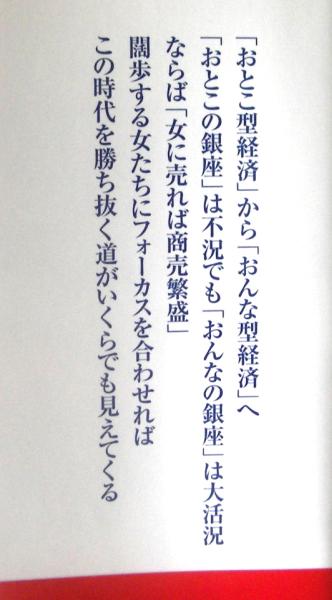 「おとこ型経済」から「おんな型経済」へ
「おとこの銀座」は不況でも「おんなの銀座」は大活況
ならば「女に売れば商売繁盛」
闊歩する女たちにフォーカスを合わせれば
この時代を勝ち抜く道がいくらでも見えてくる